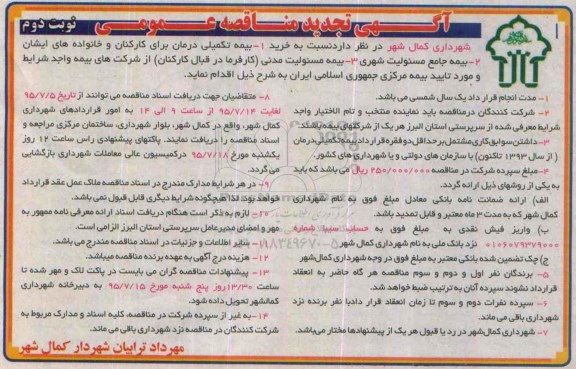 آگهی تجدید مناقصه عمومی
نوبت دوم
شهرداری کمال شهر در نظر دارد نسبت به خرید ۱-بیمه تکمیلی درمان برای کارکنان و خانواده های ایشان
۲-بیمه جامع مسئولیت شهری ۳-بیمه مسئولیت مدنی (کارفرما در قبال کارکنان) از شرکت های بیمه واجد شرایط
و مورد تایید بیمه مرکزی جمهوری اسلامی ایران به شرح ذیل اقدام نماید.
۱- مدت انجام قرار داد یک سال شمسی می باشد.
۲- شرکت کنندگان در مناقصه باید نماینده منتخب و تام الاختیار واجد
شرایط معرفی شده از سرپرستی استان البرز هر یک از شرکتهای بیمه باشند.
۳-داشتن سوابق کاری مشتمل بر حداقل دو فقره قرارداد بیمه تکمیلی درمان
(از سال ۱۳۹۳ تاکنون) با سازمان های دولتی و یا شهرداری های کشور.
۴-مبلغ سپرده شرکت در مناقصه ۲۵۰/۰۰۰/۰۰۰ ریال می باشد که باید
به یکی از روشهای ذیل ارائه گردد.
الف) ارائه ضمانت نامه بانکی معادل مبلغ فوق به نام شهرداری
کمال شهر که به مدت ۳ ماه معتبر و قابل تمدید باشد.
ب) واریز فیش نقدی به مبلغ فوق به حساب سیبا شماره
۰۱۰۶۰۷۹۳۷۹۰۰۰ نزد بانک ملی به نام شهرداری کمال شهر
ج) چک تضمین شده بانکی معتبر به مبلغ فوق در وجه شهرداری کمال شهر
۵- برندگان نفر اول و دوم و سوم مناقصه هر گاه حاضر به انعقاد
قرارداد نشوند سپرده آنان به ترتیب ضبط خواهد شد.
۶- سپرده نفرات دوم و سوم تا زمان انعقاد قرار داد با نفر برنده نزد
شهرداری باقی می ماند.
۷- شهرداری کمال شهر در رد یا قبول هر یک از پیشنهادها مختار می باشد.
۸- متقاضیان جهت دریافت اسناد مناقصه می توانند از تاریخ ۹۵/۷/۵
لغایت ۹۵/۷/۱۴ از ساعت ۹ الی ۱۴ به امور قراردادهای شهرداری
کمال شهر، واقع در کمال شهر، بلوار شهرداری، ساختمان مرکزی مراجعه و
اسناد مناقصه را دریافت نمایند. پاکتهای پیشنهادی راس ساعت ۱۲ روز
یکشنبه مورخ ۹۵/۷/۱۸ در کمیسیون عالی معاملات شهرداری بازگشایی
می گردد.
۹- در هر شرایط مدارک مندرج در اسناد مناقصه ملاک عمل عقد قرارداد
خواهد بود، لذا هیچگونه شرایط دیگری قابل قبول نمی باشد.
۱۰- لازم به ذکر است هنگام دریافت اسناد ارائه معرفی نامه ممهور به
مهر و امضای مدیر عامل سرپرستی استان البرز الزامی است.
۱۱- سایر اطلاعات و جزئیات در اسناد مناقصه مندرج می باشد.
۱۲- هزینه درج آگهی به عهده برنده مناقصه میباشد.
۱۳- پیشنهادات مناقصه گران می بایست در پاکت لاک و مهر شده تا
ساعت ۱۳/۳۰ روز پنج شنبه مورخ ۹۵/۷/۱۵ به دبیرخانه شهرداری
کمالشهر تحویل داده شود.
۱۴-به غیر از سپرده شرکت در مناقصه، کلیه اسناد و مدارک مربوط به
شرکت کنندگان در مناقصه نزد شهرداری باقی می ماند.
مهرداد ترابیان شهردار کمال شهر